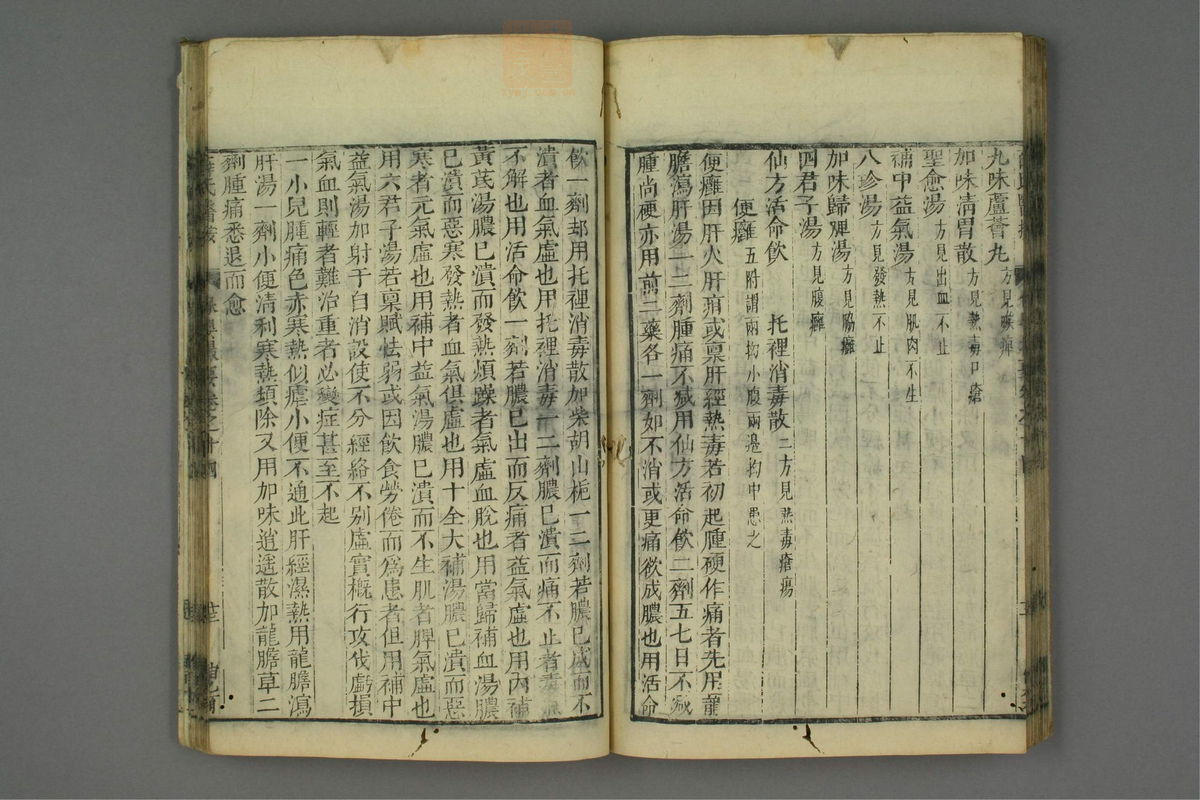 九味蘆薈丸方見喉痺
加味清胃散方見熱毒口瘡
聖愈湯方見出血不止
補中益氣湯方見肌肉不生
八珍湯方見發熱不止
加味歸脾湯方見脇癰
四君子湯方見腹癰
仙方活命飲　托裡消毒散二方見熱毒瘡瘍
便癰五附謂兩拗小腹兩邊拗中患之
便癰因肝火肝疳或稟肝經熱毒若初起腫硬作痛者先用龍
膽瀉肝湯一二劑腫痛不減用仙方活命飲二劑五七日不減
腫尚硬亦用前二藥各一劑如不消或更痛欲成膿也用活命
飲一劑却用托裡消毒散加柴胡山梔一二劑若膿已成而不
潰者血氣虛也用托裡消毒一二劑膿已潰而痛不止者毒
不解也用活命飲一劑若膿已出而反痛者益氣虛也用內補
黃芪湯膿已潰而發熱煩躁者氣虛血脫也用當歸補血湯膿
已潰而惡寒發熱者血氣俱虛也用十全大補湯膿已潰而惡
寒者元氣虛也用補中益氣湯膿已潰而不生肌者脾氣虛也
用六君子湯若稟賦怯弱或因飲食勞倦而為患者但用補中
益氣湯加射干自消設使不分經絡不別虛實概行攻伐虧損
氣血則輕者難治重者必變症甚至不起
一小兒腫痛色赤寒熱似瘧小便不通此肝經濕熱用龍膽瀉
肝湯一劑小便清利寒熱頓除又用加味逍遙散加龍膽草二
劑腫痛悉退而愈
薛氏醫按　保嬰撮要卷之十四